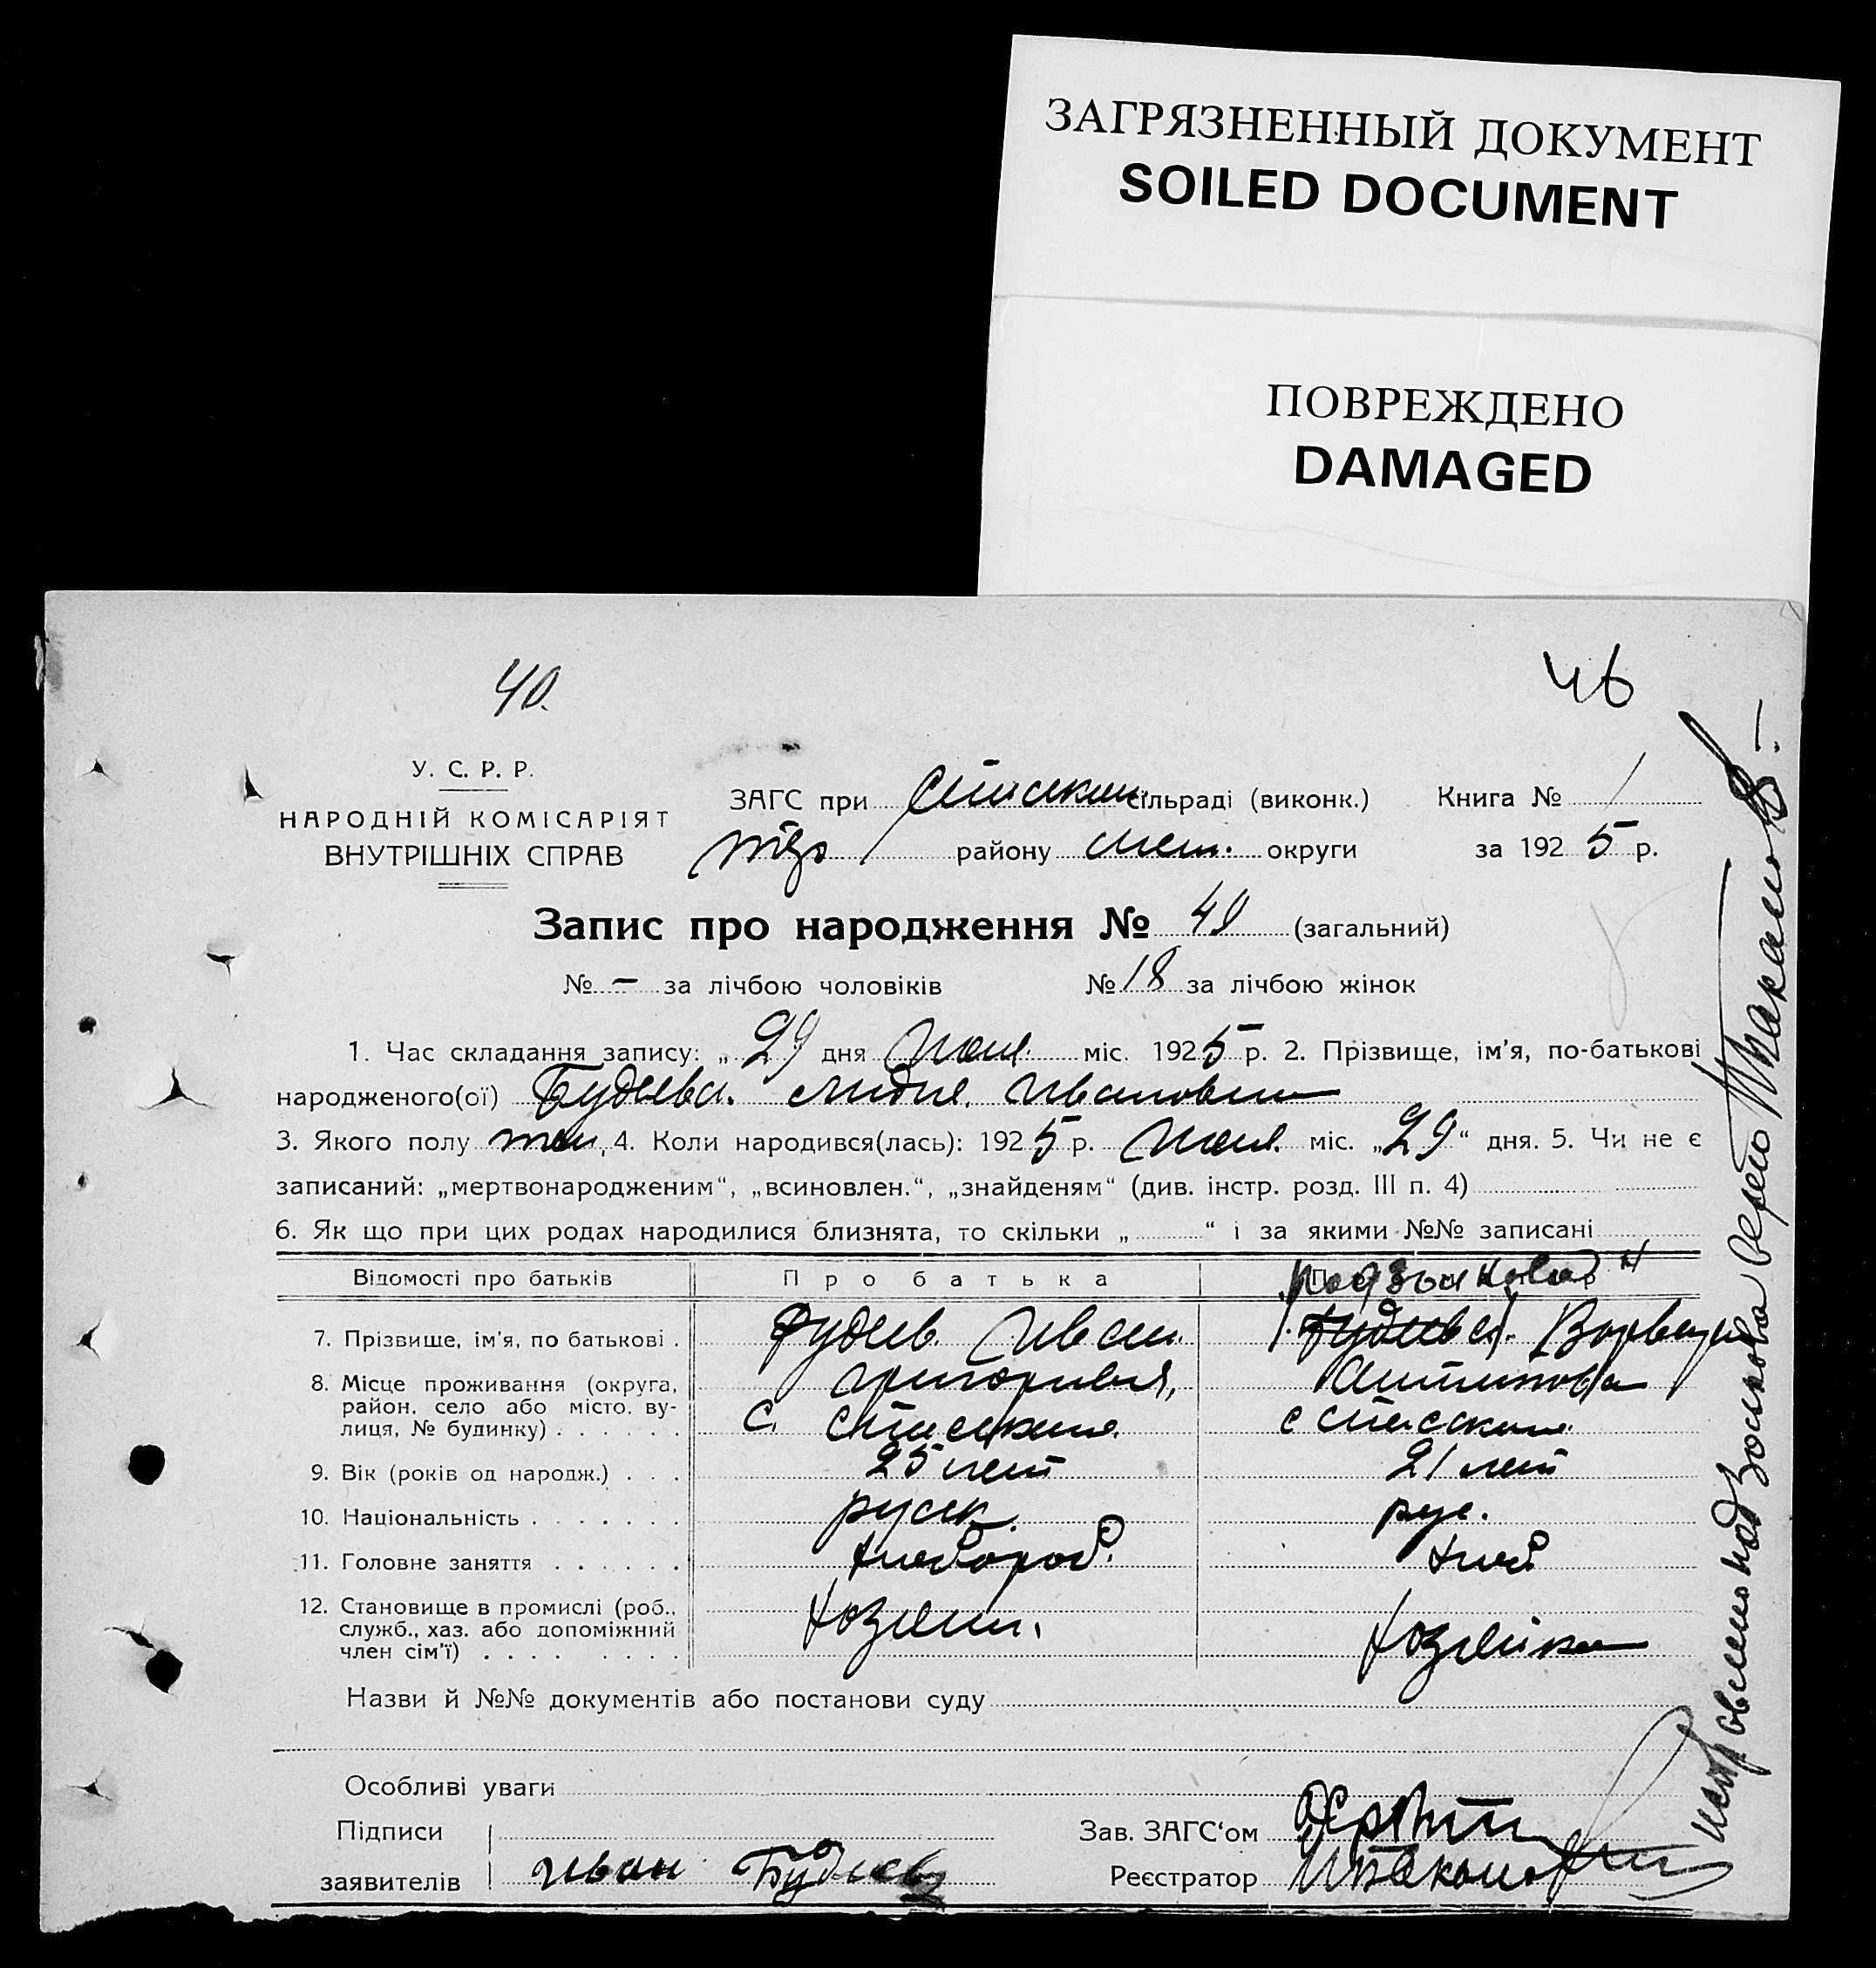 ЗАГРЯЗНЕННЫЙ ДОКУМЕНТ
SOILED DOCUMENT
ПОВРЕЖДЕНО
DAMAGED
40.
46
У. С. Р. Р.
НАРОДНІЙ КОМІСАРІЯТ
ВНУТРІШНІХ СПРАВ
ЗАГС при сільраді (виконк.) Книга № 1
району округи за 1925 р.
Запис про народження № 40 (загальний)
№ – за лічбою чоловіків № 18 за лічбою жінок
1. Час складання запису: „29 дня міс. 1925 р. 2. Прізвище, ім’я, по-батькові
народженого(ої) Будаева. Лидия. Ивановна
3. Якого полу жен, 4. Коли народився(лась): 1925 р. міс. „29“ дня. 5. Чи не є
записаний: „мертвонародженим“, „всиновлен.“, „знайденям“ (див. інстр. розд. III п. 4)
6. Як що при цих родах народилися близнята, то скільки „ “ і за якими №№ записані
Відомості про батьків Про батька
7. Прізвище, ім’я, по батькові . Будаев. Иван. Варвара
8. Місце проживання (округа, Григориевич, Антиповна
район, село або місто, ву- с. с
лиця, № будинку) . . . . . .
9. Вік (років од народж.) . . . 25 лет 21 лет
10. Національність . . . . . . . русск. рус.
11. Головне заняття . . . . . . хлебороб. хлеб
12. Становище в промислі (роб., хозяин. хозяйка
служб., хаз. або допоміжний
член сім’ї) . . . . . . . .
Назви й №№ документів або постанови суду
Особливі уваги
Підписи Зав. ЗАГС‘ом
заявителів Иван Будаев Реєстратор